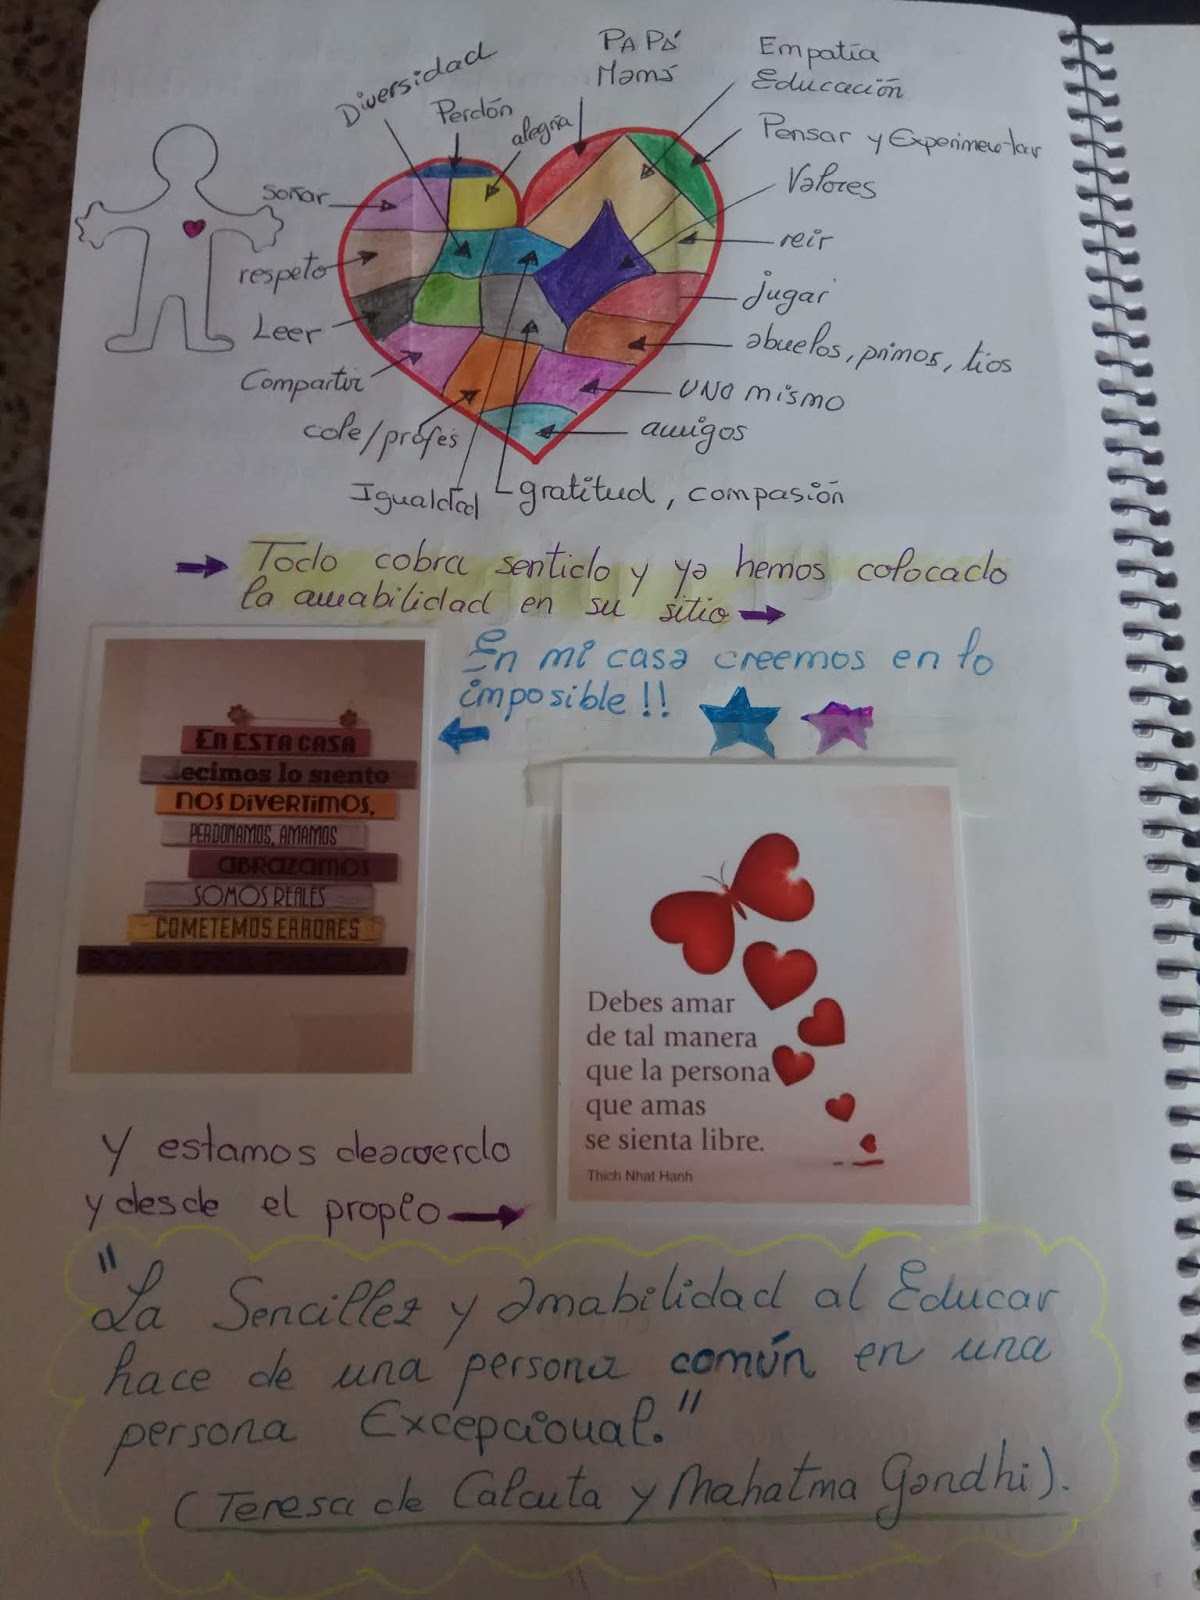 Diversidad
Perdón
alegría
PAPÁ
Mamá
Empatía
Educación
Pensar y Experimentar
Valores
reir
jugar
abuelos, primos, tios
uno mismo
amigos
gratitud, compasión
Igualdad
cole/profes
Compartir
Leer
respeto
soñar
Todo cobra sentido y ya hemos colocado
la amabilidad en su sitio
En mi casa creemos en lo
imposible!!
EN ESTA CASA
decimos lo siento
NOS DIVERTIMOS,
PERDONAMOS, AMAMOS
ABRAZAMOS
SOMOS REALES
COMETEMOS ERRORES
SOMOS UNA FAMILIA
Debes amar
de tal manera
que la persona
que amas
se sienta libre.
Thich Nhat Hanh
Y estamos deacuerdo
y desde el propio
"La Sencillez y amabilidad al Educar
hace de una persona común en una
persona Excepcional."
(Teresa de Calcuta y Mahatma Gandhi).